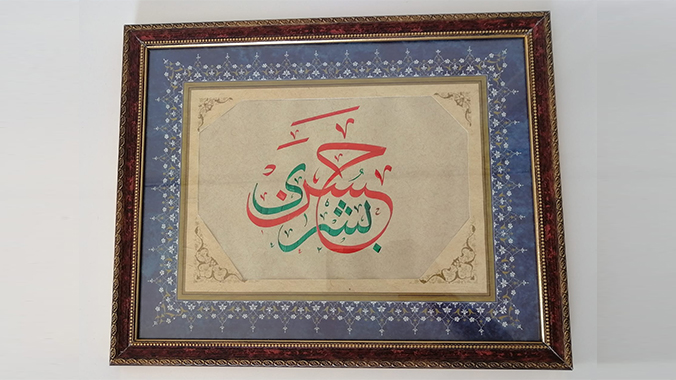 حسن
بشرى